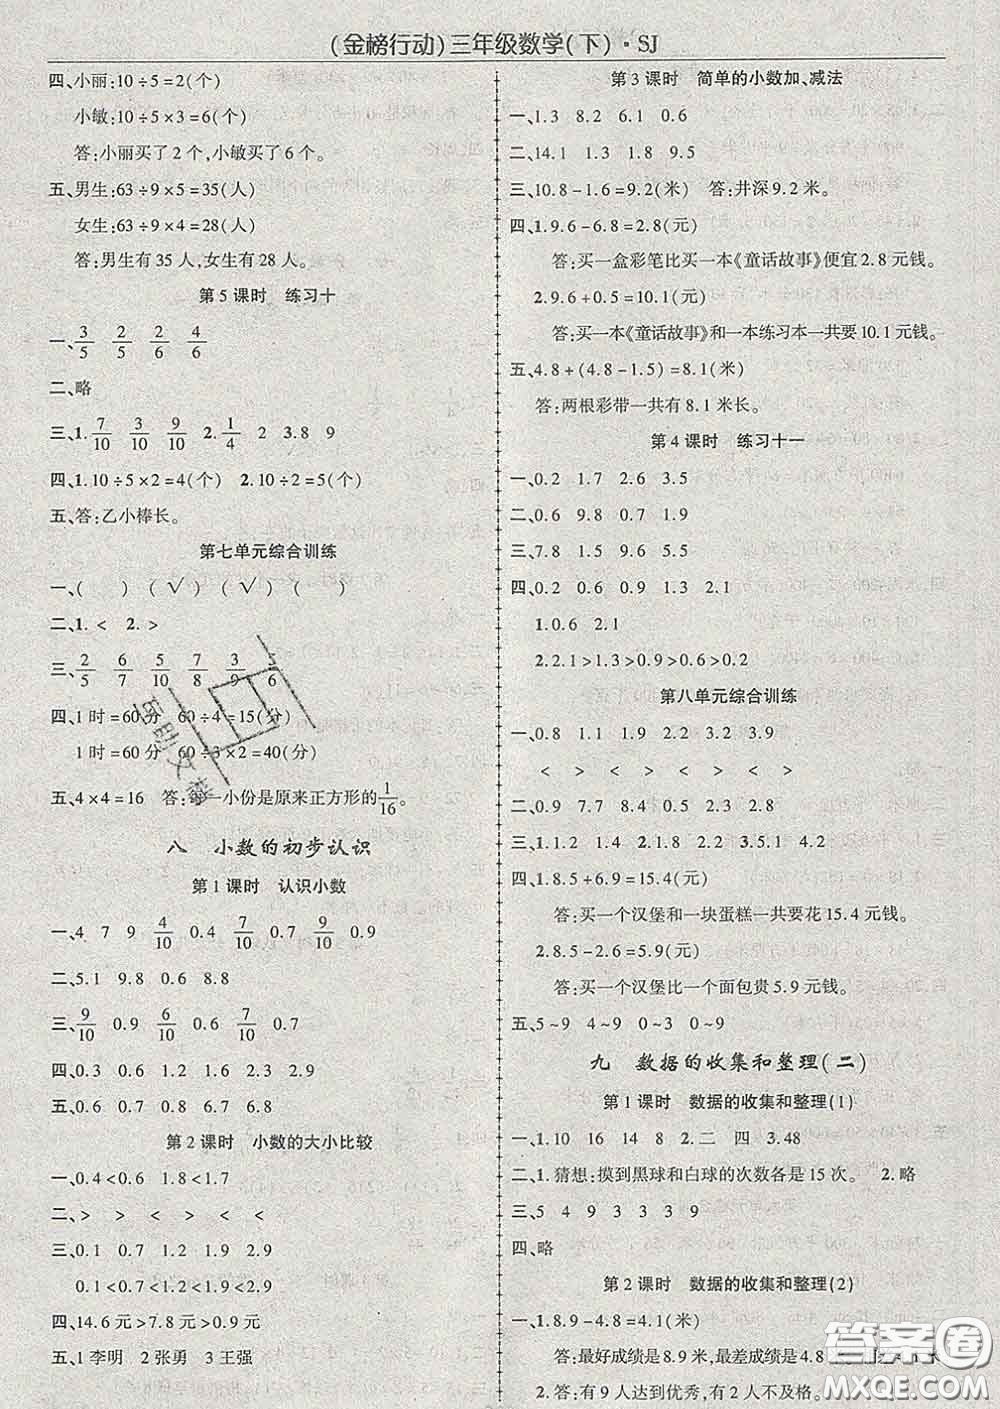 (金榜行动)三年级数学(下)·SJ
四、小丽:10÷5=2(个)
小敏:10÷5×3=6(个)
答:小丽买了2个,小敏买了6个。
五、男生:63÷9×5=35(人)
女生:63÷9×4=28(人)
答:男生有35人,女生有28人。
第5课时 练习十
一、3/5 2/5 2/6 4/6
二、略
三、1.7/10 3/10 9/10 2.1/4 2 3.8 9
四、1.10÷5×2=4(个) 2.10÷2=5(个)
五、答:乙小棒长。
第七单元综合训练
一、( ) (√) (√) ( )
二、1.< 2.>
三、2/5 6/7 5/10 7/8 3/9 5/6
四、1时=60分 60÷4=15(分)
1时=60分 60÷3×2=40(分)
五、4×4=16 答:每一小份是原来正方形的1/16。
八 小数的初步认识
第1课时 认识小数
一、4 7 9 4/10 0.4 7/10 0.7 9/10 0.9
二、5.1 0.6 0.8 8.8
三、9/10 0.9 6/10 0.6 7/10 0.7
四、0.3 0.6 1.3 1.9
五、0.6 0.9 0.8
第2课时 小数的大小比较
一、0.4<0.6 1.8>1.7
二、> > > < < <
三、0.1 0.7 0.9 1.2
0.1<0.7<0.9<1.2
四、14.6元>7.8元>0.9元
五、1李明 2张勇 3王强
第3课时 简单的小数加、减法
一、1.3 8.2 6.1 0.6
二、14.1 1.3 1.8 9.5
三、10.8-1.6=9.2(米) 答:井深9.2米。
四、1.9.6-6.8=2.8(元)
答:买一盒彩笔比买一本《童话故事》便宜2.8元钱。
2.9.6+0.5=10.1(元)
答:买一本《童话故事》和一本练习本一共要10.1元钱。
五、4.8+(4.8-1.5)=8.1(米)
答:两根彩带一共有8.1米长。
第4课时 练习十一
一、0.2 1.7 2.6 3.5
二、0.6 9.8 0.7 1.9
三、7.8 1.5 9.6 5.6
四、0.2 0.6 0.9 1.3 2.1
1.0.6 2.1
2.2.1>1.3>0.9>0.6>0.2
第八单元综合训练
一、0.8 1.1 1.9 2.2 3.2 3.9
< < > < < < <
二、0.9 7.7 8.4 0.5 2.6 0.9
三、1.0.8 1.9 1.4 2.1.8 2.2 3.5.1 4.2
四、1.8.5+6.9=15.4(元)
答:买一个汉堡和一块蛋糕一共要花15.4元钱。
2.8.5-2.6=5.9(元)
答:买一个汉堡比一个面包贵5.9元钱。
五、5~9 4~9 0~3 0~9
九 数据的收集和整理(二)
第1课时 数据的收集和整理(1)
一、1.10 16 14 8 2.二 四 3.48
二、1.猜想:摸到黑球和白球的次数各是15次。 2.略
三、5 4 9 3 3 3 9
四、略
第2课时 数据的收集和整理(2)
一、1.8.9-4.8=4.1(米)
答:最好成绩是8.9米,最差成绩是4.8
2.答:有9人达到优秀,有2人不及格。
答案圈
MXQE.COM